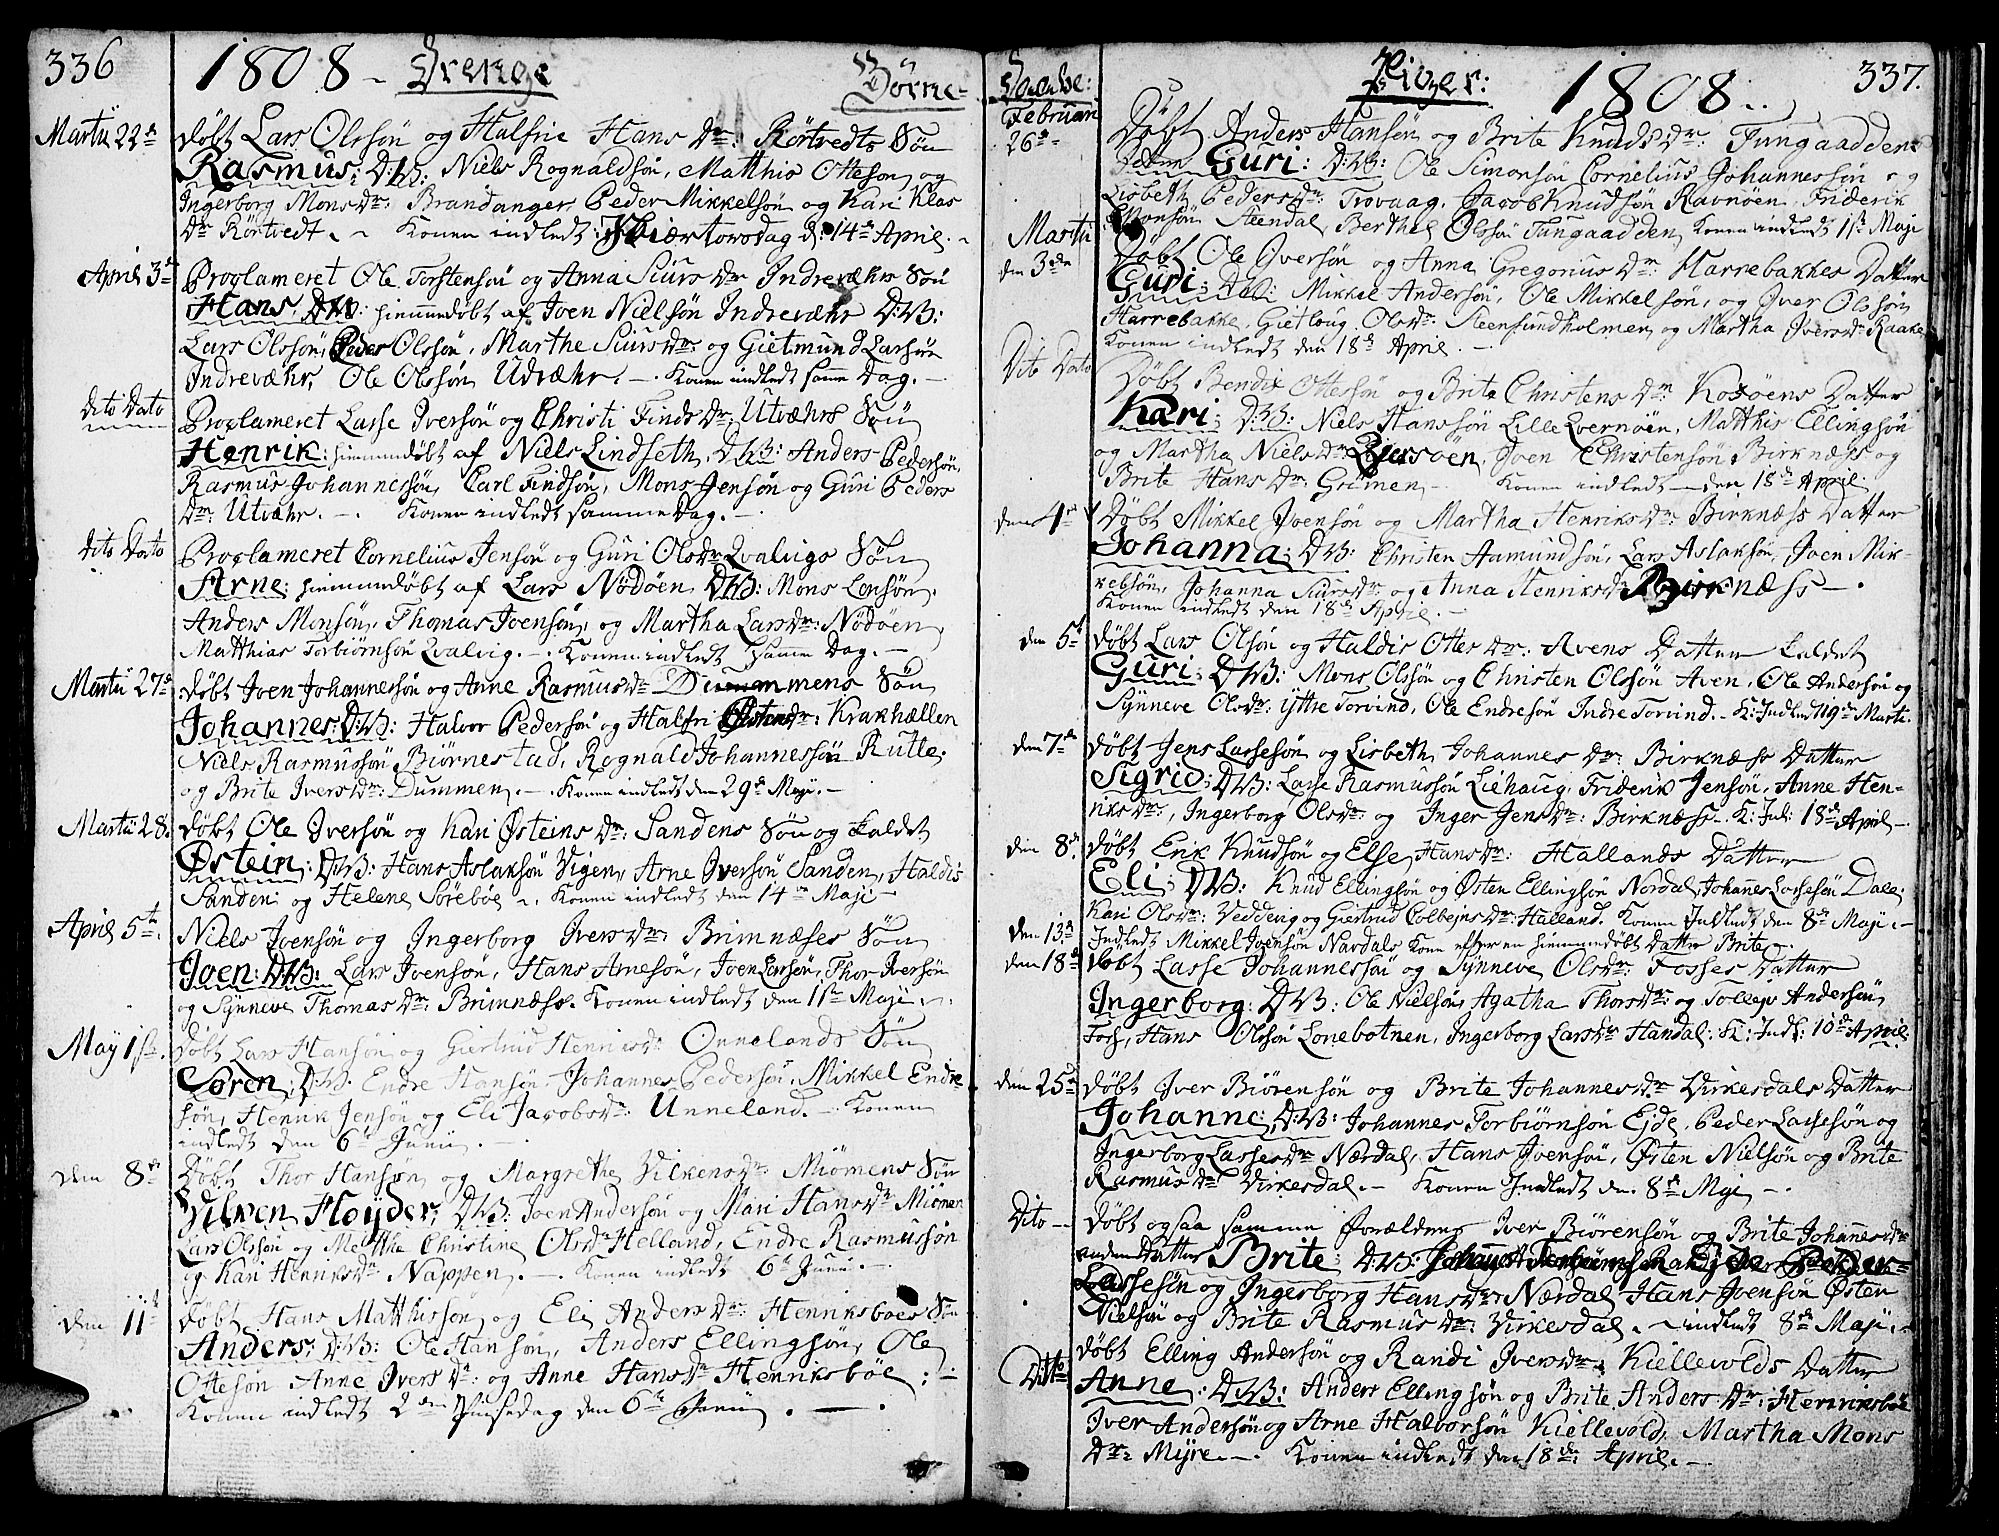 336 1808 - Drenge Børne-
Martii 22de døbt Lars Olssøn og Halfrie Hans Dr: Rørtvedts Søn
Rasmus: D:W: Niels Rognaldsøn, Matthis Ottesøn og
Ingerborg Mons Dr: Brandanger, Peder Mikkelsøn og Kari Klas
Dr Rørtvedt. - Konen indledt: Skiærtorsdag d: 14de April. -
April 3de Proglameret Ole Torstensøn og Anna Siurs Dr Indrevæhr Søn
Hans, D:W: hiemmedøbt af Joen Nielsøn Indrevæhr D:W:
Lars Olssøn, Peder Olssøn, Marthe Siurs Dr: og Gietmund Larsøn
Indrevæhr, Ole Olssøn Udvæhr. - Konen indledt samme Dag. -
Dito Dato Proglameret Lasse Iversøn og Christi Finds Dr, Utvæhrs Søn
Henrik: hiemmedøbt af Niels Lindseth, D:W: Anders Pedersøn,
Rasmus Johannessøn, Carl Findsøn, Mons Jensøn og Guri Peders
Dr: Utvæhr. - Konen indledt samme Dag. -
Dito Dato Proglameret Cornelius Jensøn og Guri Ols Dr Qvalvigs Søn
Arne: hiemmedøbt af Lars Nødøen D:W: Mons Lonsøn,
Anders Monsøn, Thomas Joensøn, og Martha Lars Dr: Nødøen,
Matthias Torbiørnsøn Qvalvig. - Konen indledt samme Dag. -
Martii 27de døbt Joen Johannessøn og Anne Rasmus Dr Dummens Søn
Johannes: D:W: Halvor Pedersøn og Halfri Østens Dr: Krakhællen
Niels Rasmussøn Biørnestad, Rognald Johannessøn Rutle
og Brite Ivers Dr: Dummen. - Konen indledt den 29de Maji. -
Martii 28. døbt Ole Iversøn og Kari Østeins Dr: Sandens Søn og kaldet
Østein: D:W: Hans Aslaksøn Vigen, Arne Iversøn Sanden, Haldis
Sanden og Helene Sørebøe -. Konen indledt den 14de Maji -
April 5te. Niels Joensøn og Ingerborg Ivers Dr: Brimnæses Søn
Joen: D:W: Lars Joensøn, Hans Arnesøn, Joen Larsøn, Thor Iversøn
og Synneve Thomas Dr: Brimnæss. Konen indledt den 11te Maji. -
May 1ste. døbt Lars Hansøn og Giertrud Henriks Dr Onnelands Søn
Søren: D:W. Endre Hansøn, Johannes Pedersøn, Mikkel Endre-
søn, Henrik Jensøn og Eli Jacobs Dr: Unneland. - Konen
indledt den 6te Junii. -
den 8de Døbt Thor Hansøn og Margrethe Vilkens Dr: Miømens Søn
Vilken Høyder: D:W: Joen Andersøn og Mari Hans Dr Miømen
Lars Olssøn og Mettke Christine Ols Dr Helland, Endre Rasmussøn
og Kari Henriks Dr Nappen. - Konen indledt 6te Junii. -
den 11te døbt Hans Matthissøn og Eli Anders Dr: Henriksbøes Søn
Anders: D:W: Ole Hansøn, Anders Ellingsøn, Ole
Ottesøn Anne Ivers Dr: og Anne Hans Dr Henriksbøe: -
Konen indledt 2den Pinsedag den 6te Junii. -
Daabe: Piger: 1808. 337.
Februari
26de Døbt Anders Hansøn og Brite Knuds Dr: Tungaadden
Guri: D:W: Ole Simonsøn Cornelius Johannessøn og
Lisbeth Peders Dr: Trovaag, Jacob Knudsøn Ravnøen, Friderik
Monsøn Steendal, Berthel Olssøn Tungaadden, Konen indledt 1ste Maji
Martii
den 3de Døbt Ole Iversøn og Anna Gregorius Dr: Harrebakkes Datter
Guri: D:W: Mikkel Andersøn, Ole Mikkelsøn, og Iver Olssøn
Harrebakke, Gietloug Ols Dr: Steensundholmen, og Martha Ivers Dr Raake
Konen indledt den 18de April. -
Dito Dato Døbt Bendix Ottesøn og Brite Christens Dr Kobøens Datter
Kari: D:W: Niels Hanssøn Lille Qvernøen, Matthis Ellingsøn
og Martha Niels Dr, Joen Christensøn Birknæss og
Brite Hans Dr: Grimen - Konen indledt den 18de April.
den 4de Døbt Mikkel Joensøn og Martha Henriks Dr: Birknæss Datter
Johanna: D:W: Christen Aamundsøn, Lars Aslaksøn, Joen Mik-
kelsøn, Johanna Siurs Dr: og Anna Henriks Dr Birknæss -.
Konen indledt den 18de April. -
den 5te døbt Lars Olsøn og Haldis Ottes Dr: Avens Datter kaldet
Guri: D:W: Mons Olssøn og Christen Olssøn Aven, Ole Andersøn og
Synneve Ols Dr: yttre Torvind, Ole Endresøn Indre Torvind. - K: Indledt 19de Marti.
den 7de døbt Jens Lassesøn og Lisbeth Johannes Dr: Birknæss Datter
Sigrid: D:W: Lasse Rasmussøn Liehaug, Friderik Jensøn, Anne Hen-
riks Dr:, Ingerborg Ols Dr: og Inger Jens Dr: Birknæss - K: Ind: 18de April -
den 8de døbt Erik Knudsøn og Else Hans Dr: Hallands Datter
Eli: D:W: Knud Ellingsøn og Østen Ellingsøn Nordal, Johannes Lassesøn Dale,
Kari Ols Dr: Vedding og Giertrud Colbejns Dr: Halland. Konen Indledt den 8de Maji. -
den 13de Indledt Mikkel Joensøn Nardals Kone efter en hiemmedøbt Datter Brite -.
den 18de Døbt Lasse Johannessøn og Synneve Ols Dr: Fosses Datter
Ingerborg: D:W: Ole Nielsøn, Agatha Thors Dr: og Tollejv Andersøn
Foss, Hans Olssøn Lonebotnen, Ingerborg Lars Dr Handal: K: Indl: 10de April
den 25de døbt Iver Biørensøn og Brite Johannes Dr Virkesdals Datter
Johanne: D:W: Johannes Torbiørnsøn Ejde, Peder Lassesøn og
Ingerborg Lasses Dr Nærdal, Hans Joensøn, Østen Nielsøn og Brite
Rasmus Dr Virkesdal. - Konen Indledt den 8de Maji -
Dito - døbt ogsaa samme forældres Iver Biørensøn og Brite Johannes Dr
anden Datter Brite: D:W: Johannes Torbiørnsøn Ejde Peder
Lassesøn og Ingerborg Hans Dr: Nærdal Hans Joensøn Østen
Nielsøn og Brite Rasmus Dr: Virkesdal. - indledt 8de Maji. -
Ditto døbt Elling Andersøn og Randi Ivers Dr: Kiellevolds Datter
Anne: D:W: Anders Ellingsøn og Brite Anders Dr: Henriksbøe
Iver Andersøn og Arne Halvorsøn Kiellevold, Martha Mons
Dr: Myre -. Konen indledt den 18de: April. -